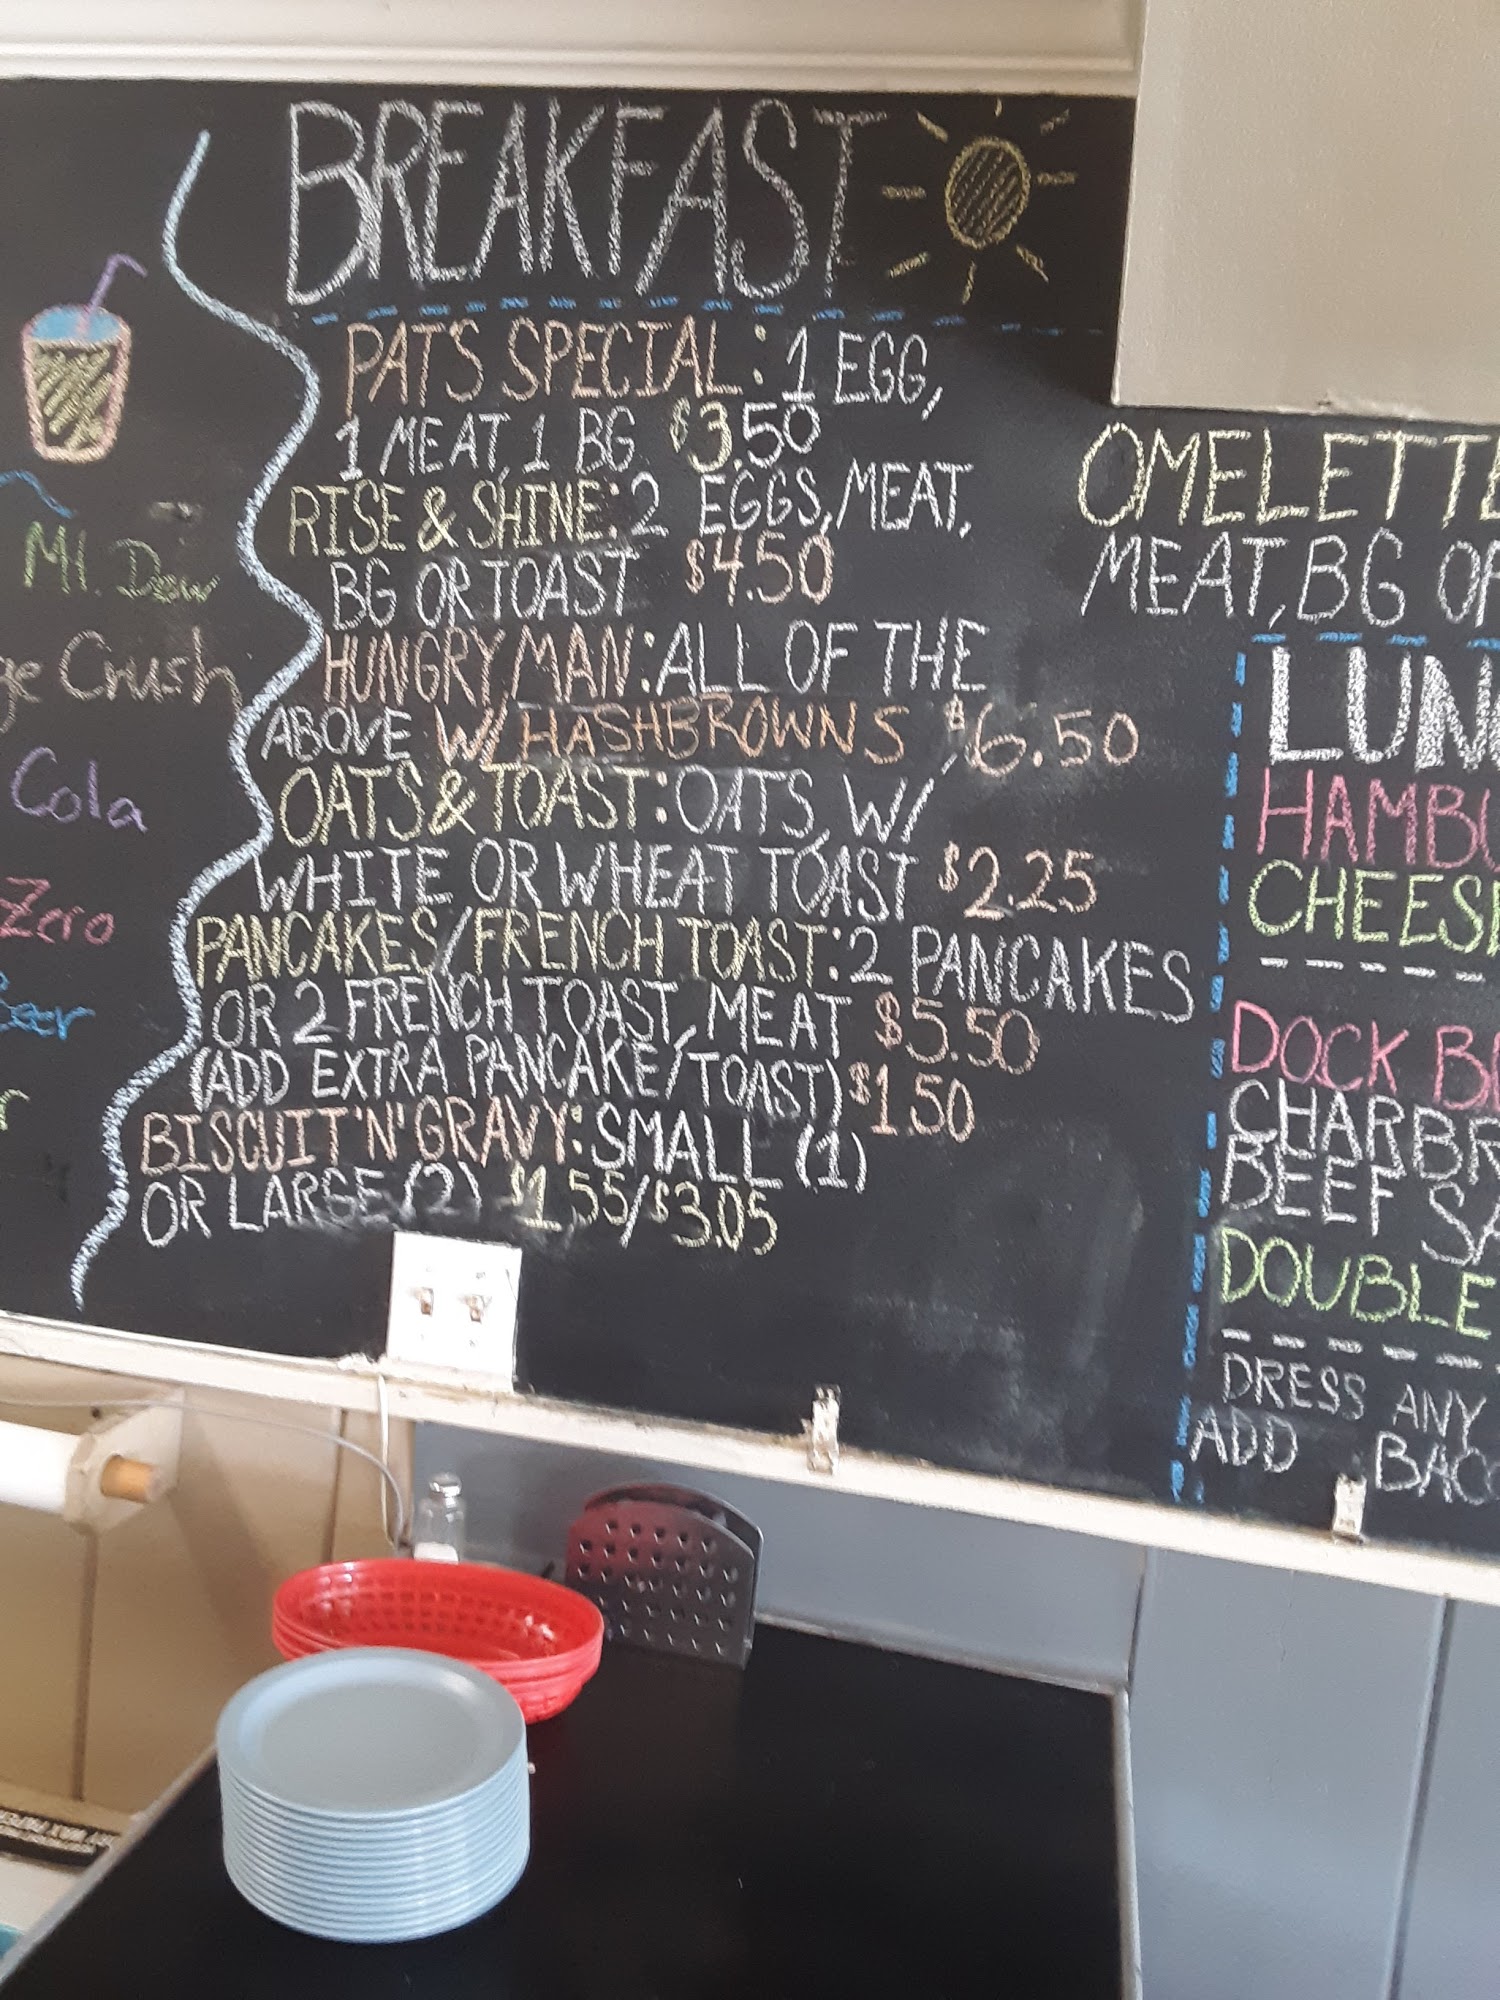 BREAKFAST
PAT'S SPECIAL: 1 EGG,
1 MEAT, 1 BG $3.50
RISE & SHINE: 2 EGGS, MEAT,
BG OR TOAST $4.50
HUNGRY MAN: ALL OF THE
ABOVE W/ HASHBROWNS $6.50
OATS & TOAST: OATS, W/
WHITE OR WHEAT TOAST $2.25
PANCAKES/FRENCH TOAST: 2 PANCAKES
OR 2 FRENCH TOAST, MEAT $5.50
(ADD EXTRA PANCAKE/TOAST) $1.50
BISCUIT 'N' GRAVY: SMALL (1)
OR LARGE (2) $1.55/$3.05
Mt. Dew
ge Crush
Cola
Zero
Beer
r
OMELETTE
MEAT, BG OR
LUNC
HAMBU
CHEESE
DOCK B
CHARBR
BEEF SA
DOUBLE
DRESS ANY
ADD BACO